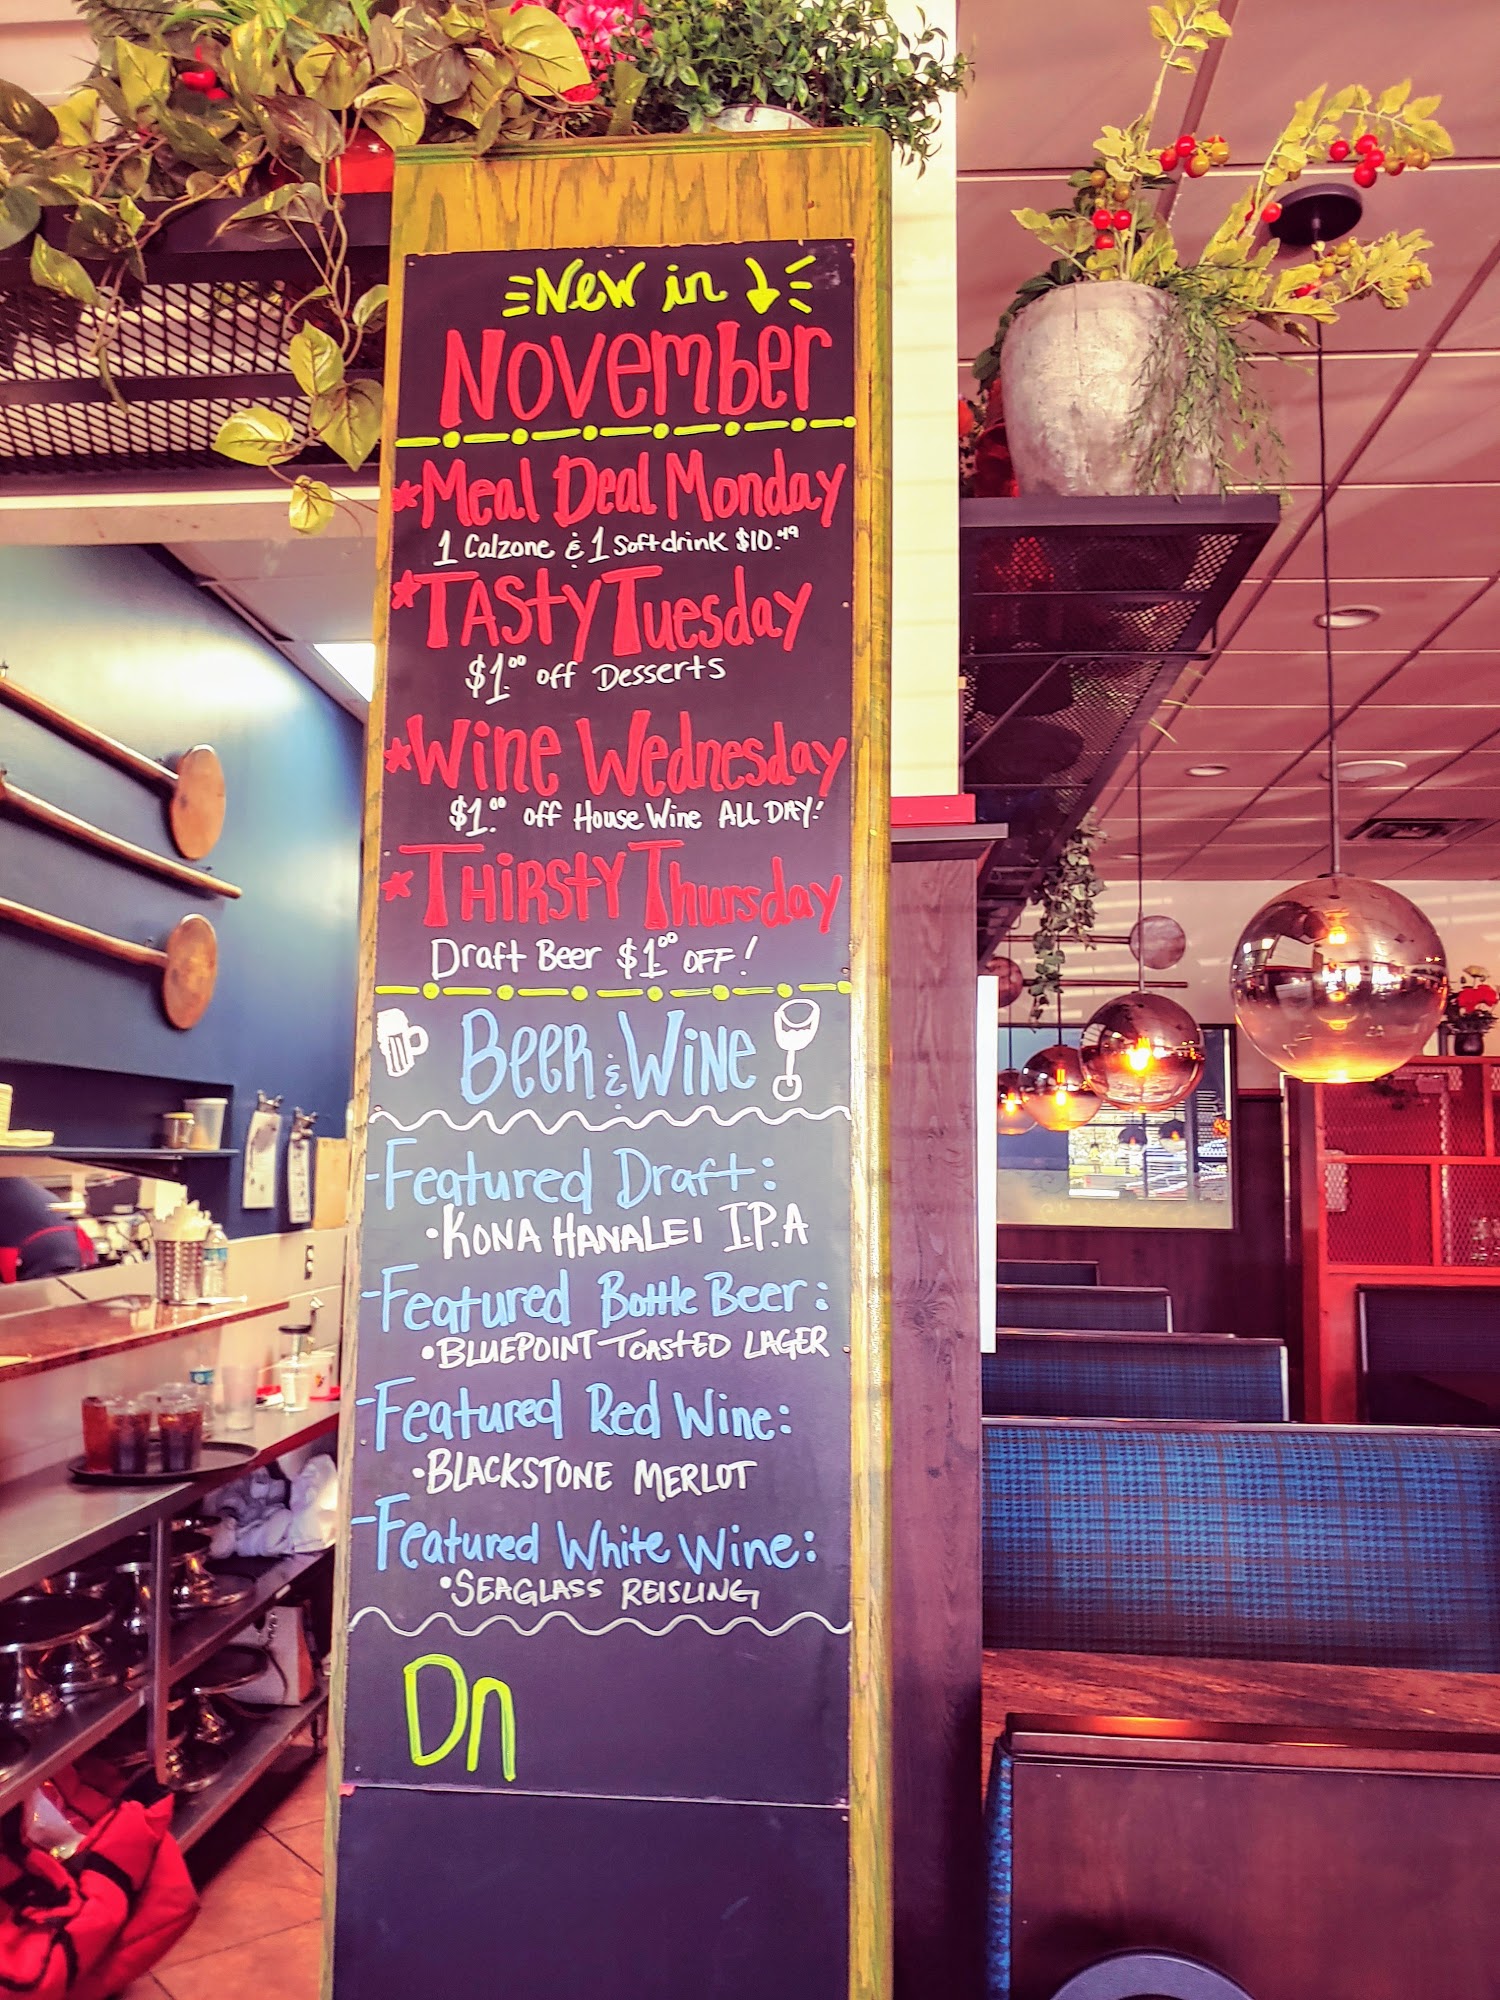 New in
November
Meal Deal Monday
1 Calzone & 1 Softdrink $10.49
Tasty Tuesday
$1.00 off Desserts
Wine Wednesday
$1.00 off House Wine ALL DAY!
Thirsty Thursday
Draft Beer $1.00 OFF!
Beer & Wine
-Featured Draft:
•KONA HANALEI I.P.A
-Featured Bottle Beer:
•BLUEPOINT TOASTED LAGER
-Featured Red Wine:
•BLACKSTONE MERLOT
-Featured White Wine:
•SEAGLASS REISLING
Dn